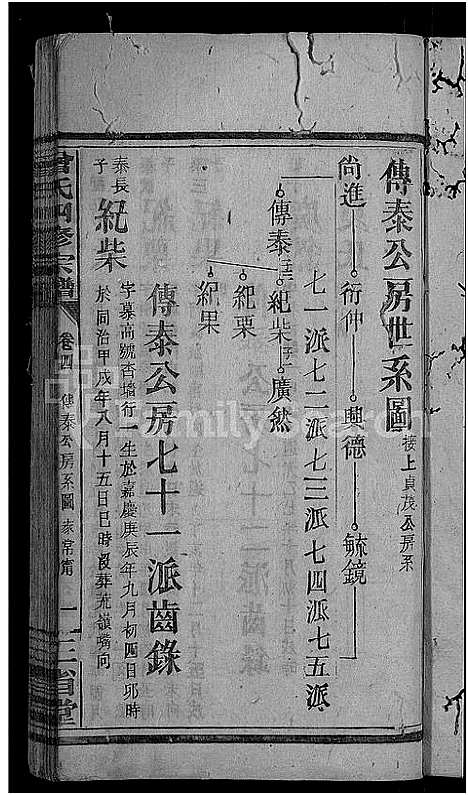 傳泰公房世系圖 接上貞茂公房系
尚進 衍仲 興德 毓鏡
七一派七二派七三派七四派七五派
傳泰 紀柴 廣然
紀栗
紀果
傳泰公房七十一派齒錄
泰長子 紀柴 字慕高號杏墻行一生於嘉慶庚辰年九月初四日卯時
於同治甲戌年八月十五日巳時歿葬荒嶺嘴向
曾氏四修宗譜 卷四 傳泰公房系圖 一 三省堂
familysearch